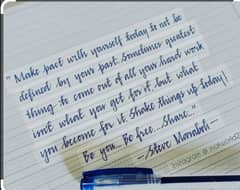 "Make pact with yourself today to not be
defined by your past. Sometimes greatest
thing to come out of all your hard work
isn't what you get for it, but what
you become for it. Shake things up today!
Be you... Be free... Share..."
- Steve Maraboli -
Instagram @